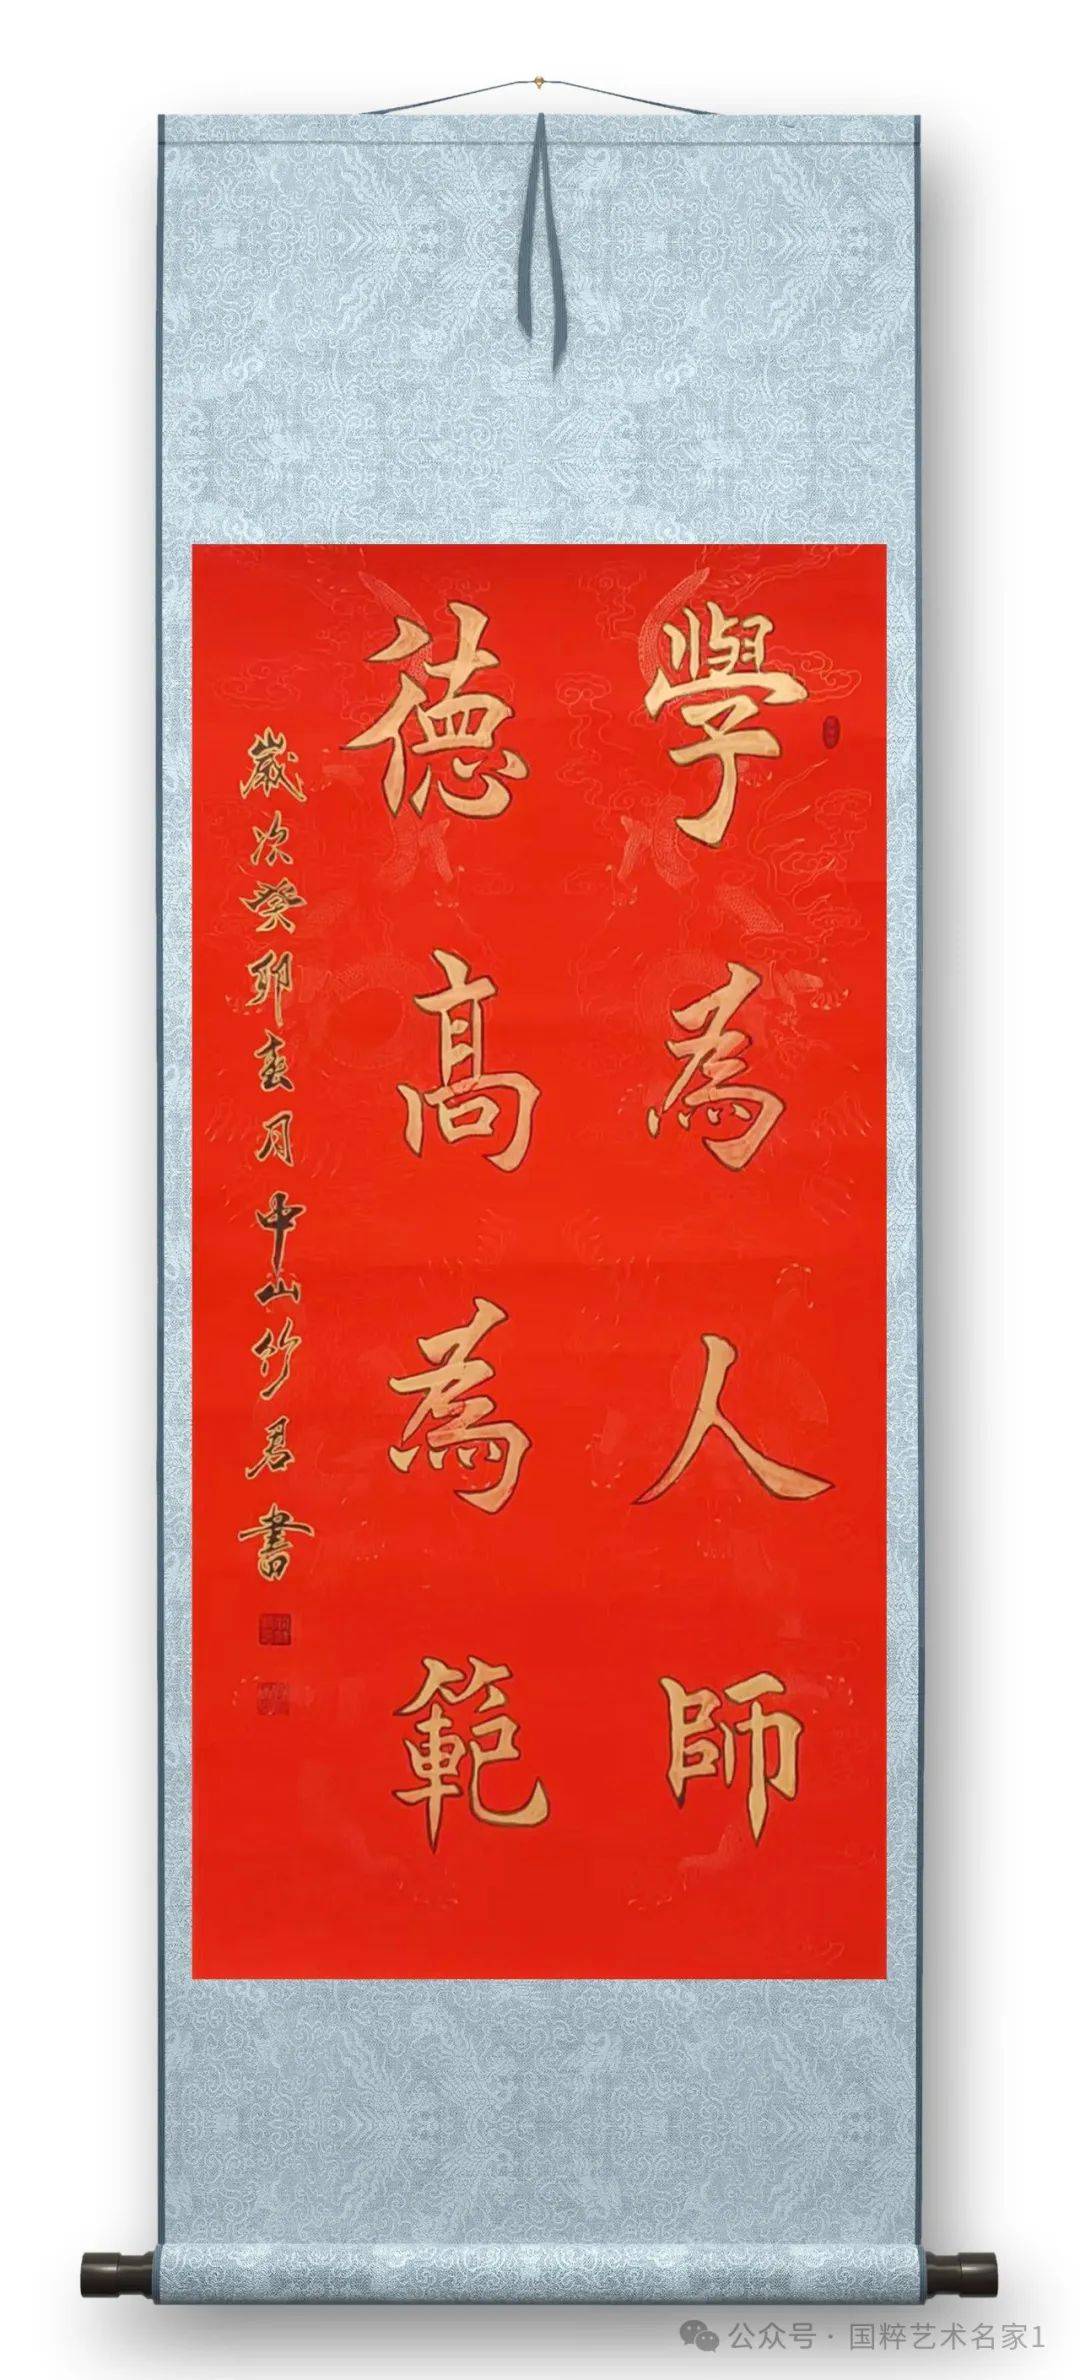 學為人師
德高為範
歲次癸卯春月中山竹君書
公众号 · 国粹艺术名家1